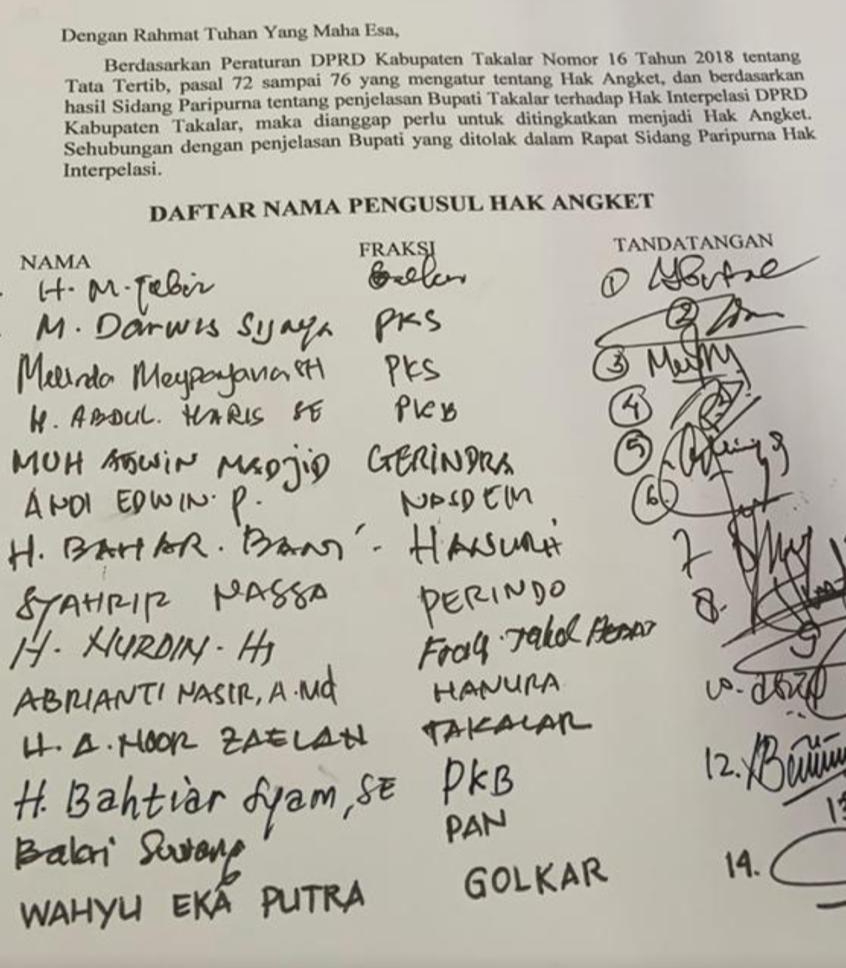 Dengan Rahmat Tuhan Yang Maha Esa,
Berdasarkan Peraturan DPRD Kabupaten Takalar Nomor 16 Tahun 2018 tentang
Tata Tertib, pasal 72 sampai 76 yang mengatur tentang Hak Angket, dan berdasarkan
hasil Sidang Paripurna tentang penjelasan Bupati Takalar terhadap Hak Interpelasi DPRD
Kabupaten Takalar, maka dianggap perlu untuk ditingkatkan menjadi Hak Angket.
Sehubungan dengan penjelasan Bupati yang ditolak dalam Rapat Sidang Paripurna Hak
Interpelasi.
DAFTAR NAMA PENGUSUL HAK ANGKET
NAMA FRAKSI TANDATANGAN
H. M. 1
M. Darwis Sijaya PKS 2
Melinda Meypayana SH PKS 3
H. ABDUL. HARIS SE PKB 4
MUH MADJID GERINDRA 5
ANDI EDWIN. P. NASDEM 6
H. BAHAR. 7
SYAHRIR NASSA PERINDO 8.
H. NURDIN. HS 9
ABRIANTI NASIR, A.Md HANURA 10.
H. A. NOOR ZAELAN TAKALAR
H. Bahtiar Syam, SE PKB 12.
Bakri PAN 13
WAHYU EKA PUTRA GOLKAR 14.